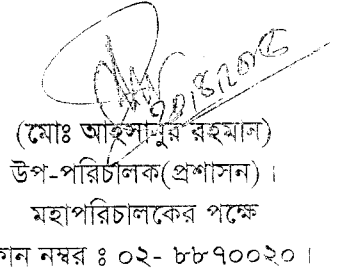 (মোঃ আহসানুর রহমান)
উপ-পরিচালক(প্রশাসন) ।
মহাপরিচালকের পক্ষে
নম্বর ঃ ০২- ৮৮৭০০২০ ।